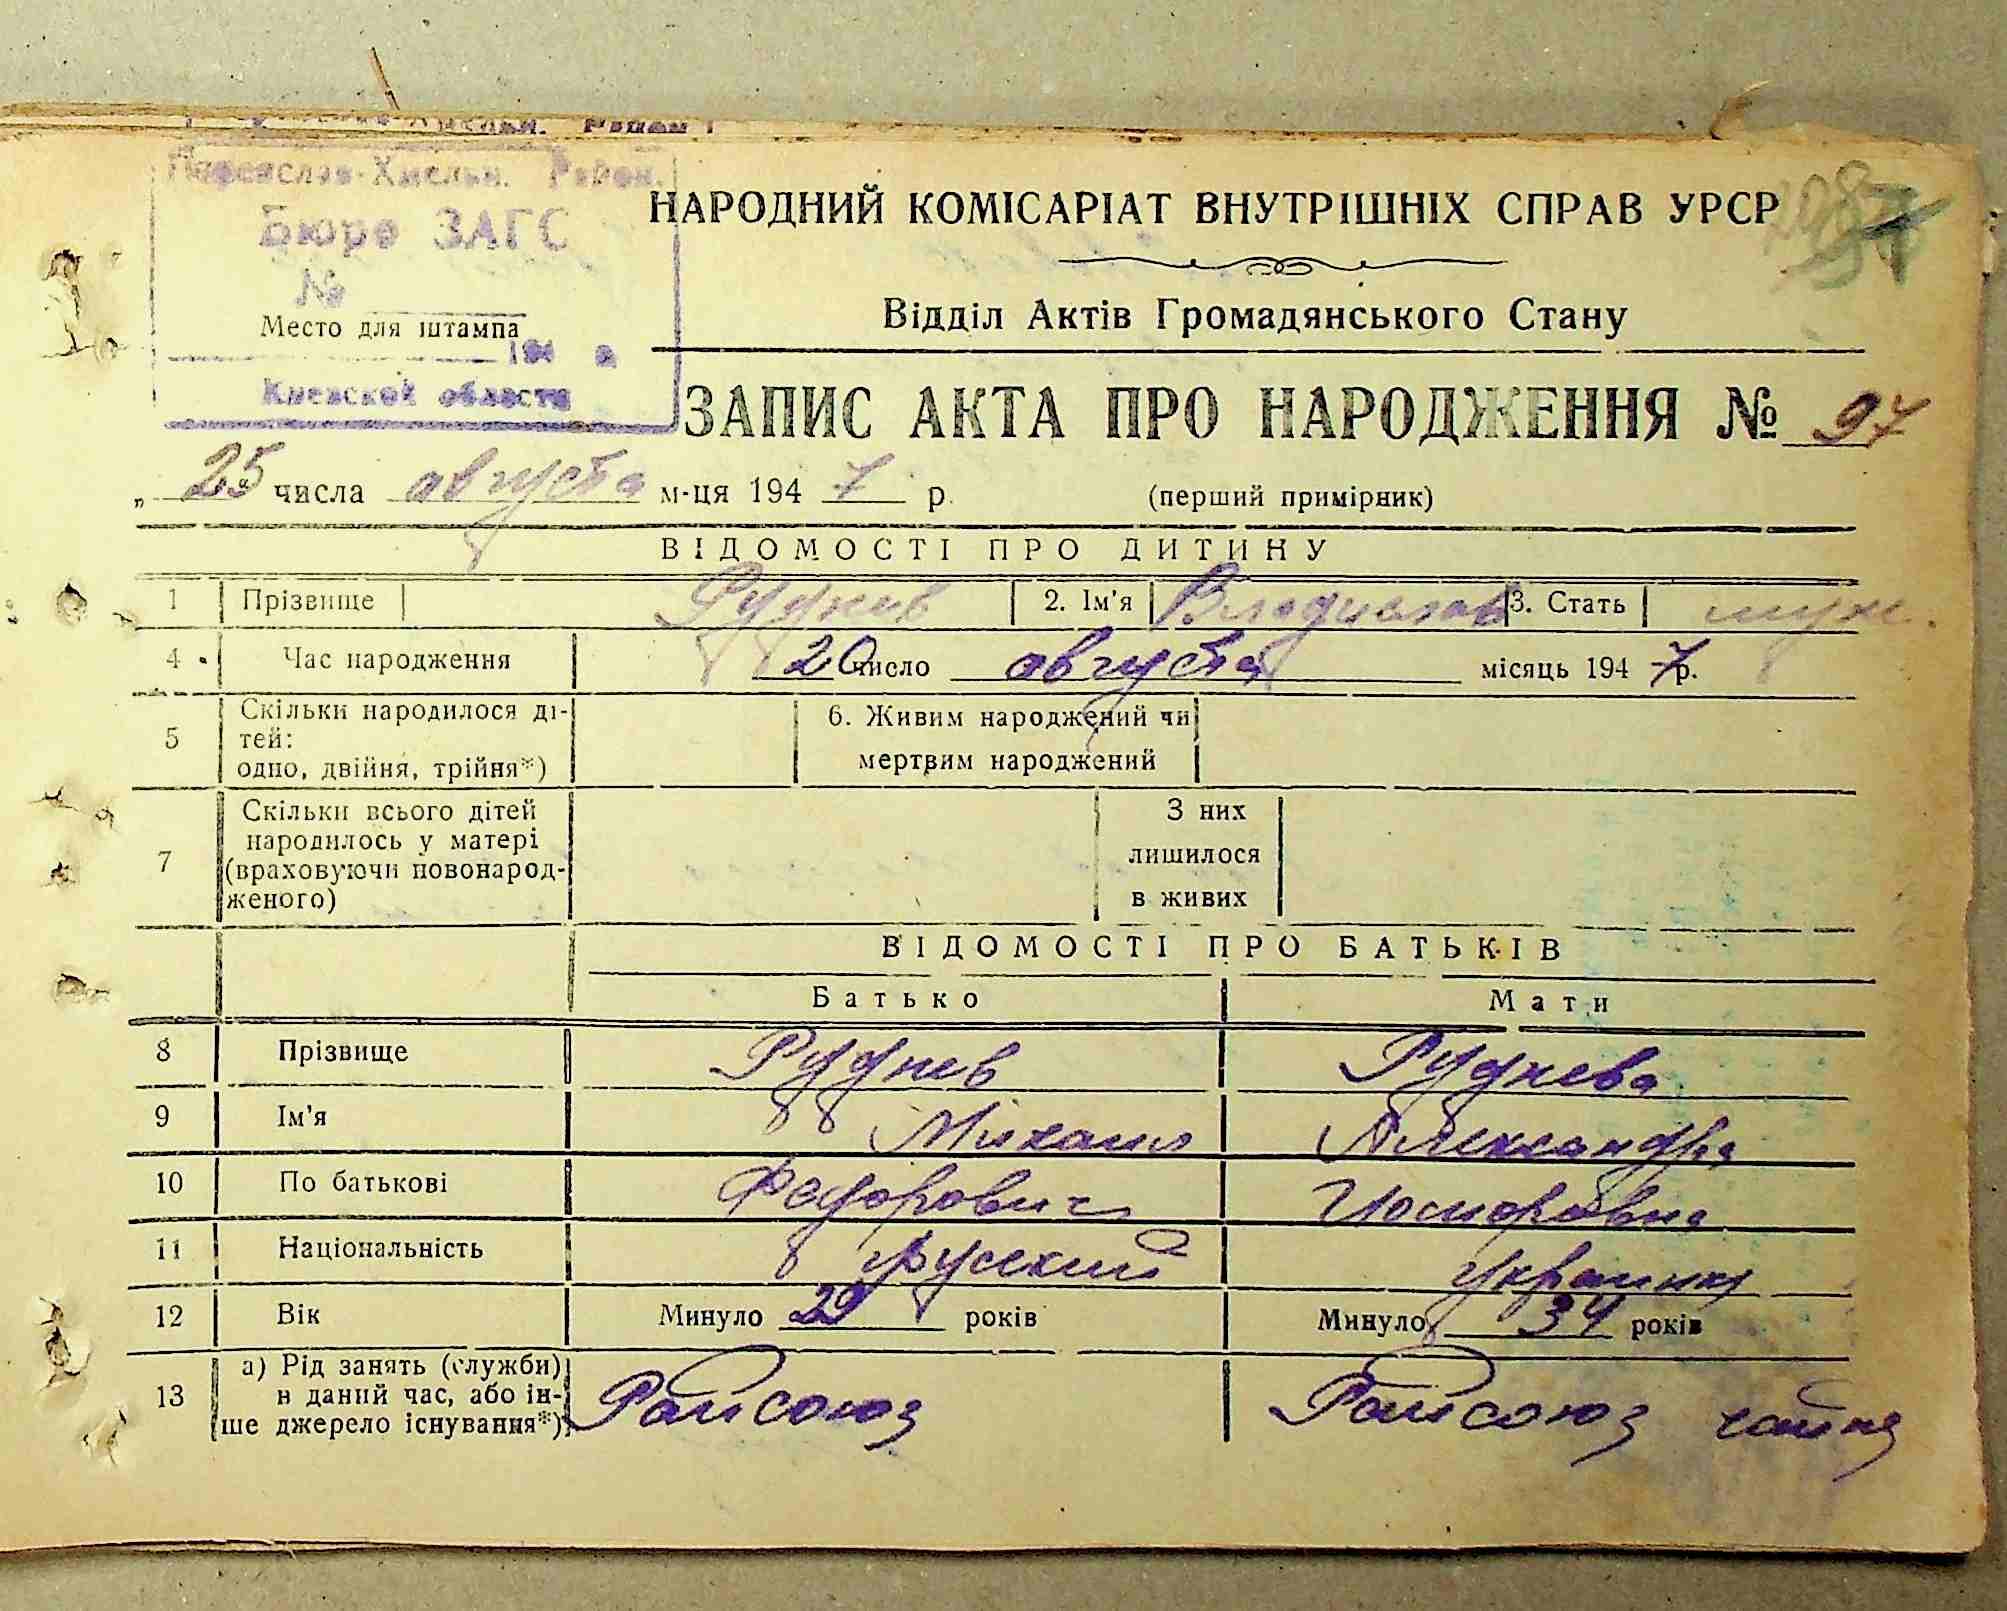 Переяслав-Хмельн. Район.
Бюро ЗАГС
№
Место для штампа
194 г
Киевской области
НАРОДНИЙ КОМІСАРІАТ ВНУТРІШНІХ СПРАВ УРСР
Відділ Актів Громадянського Стану
ЗАПИС АКТА ПРО НАРОДЖЕННЯ № 97
„ 25 числа августа м-ця 194 7 р. (перший примірник)
ВІДОМОСТІ ПРО ДИТИНУ
1 Прізвище Руднев 2. Ім'я Владислав 3. Стать муж.
4 Час народження 20 число августа місяць 194 7 р.
5 Скільки народилося ді-
тей:
одно, двійня, трійня*)
6. Живим народжений чи
мертвим народжений
7 Скільки всього дітей
народилось у матері
(враховуючи новонарод-
женого)
З них
лишилося
в живих
ВІДОМОСТІ ПРО БАТЬКІВ
Батько Мати
8 Прізвище Руднев Руднева
9 Ім'я Михаил Александра
10 По батькові Федорович Иосифовна
11 Національність русский украинка
12 Вік Минуло 29 років Минуло 34 років
13 а) Рід занять (служби)
в даний час, або ін-
ше джерело існування*)
Райсоюз Райсоюз чайна